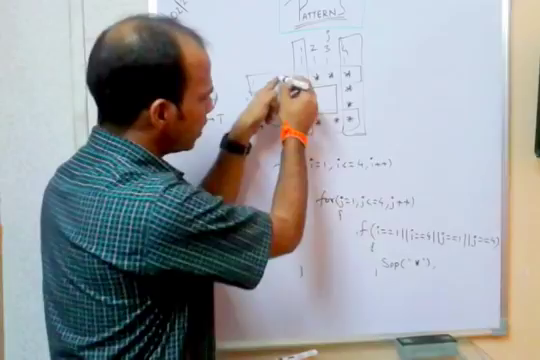 PATTERNS
j
1 2 3 4
* * *
*
*
* *
i=1, i<=4, i++)
for(j=1, j<=4, j++)
{
if(i==1||i==4||j==1||j==4)
{
Sop("*"),
}